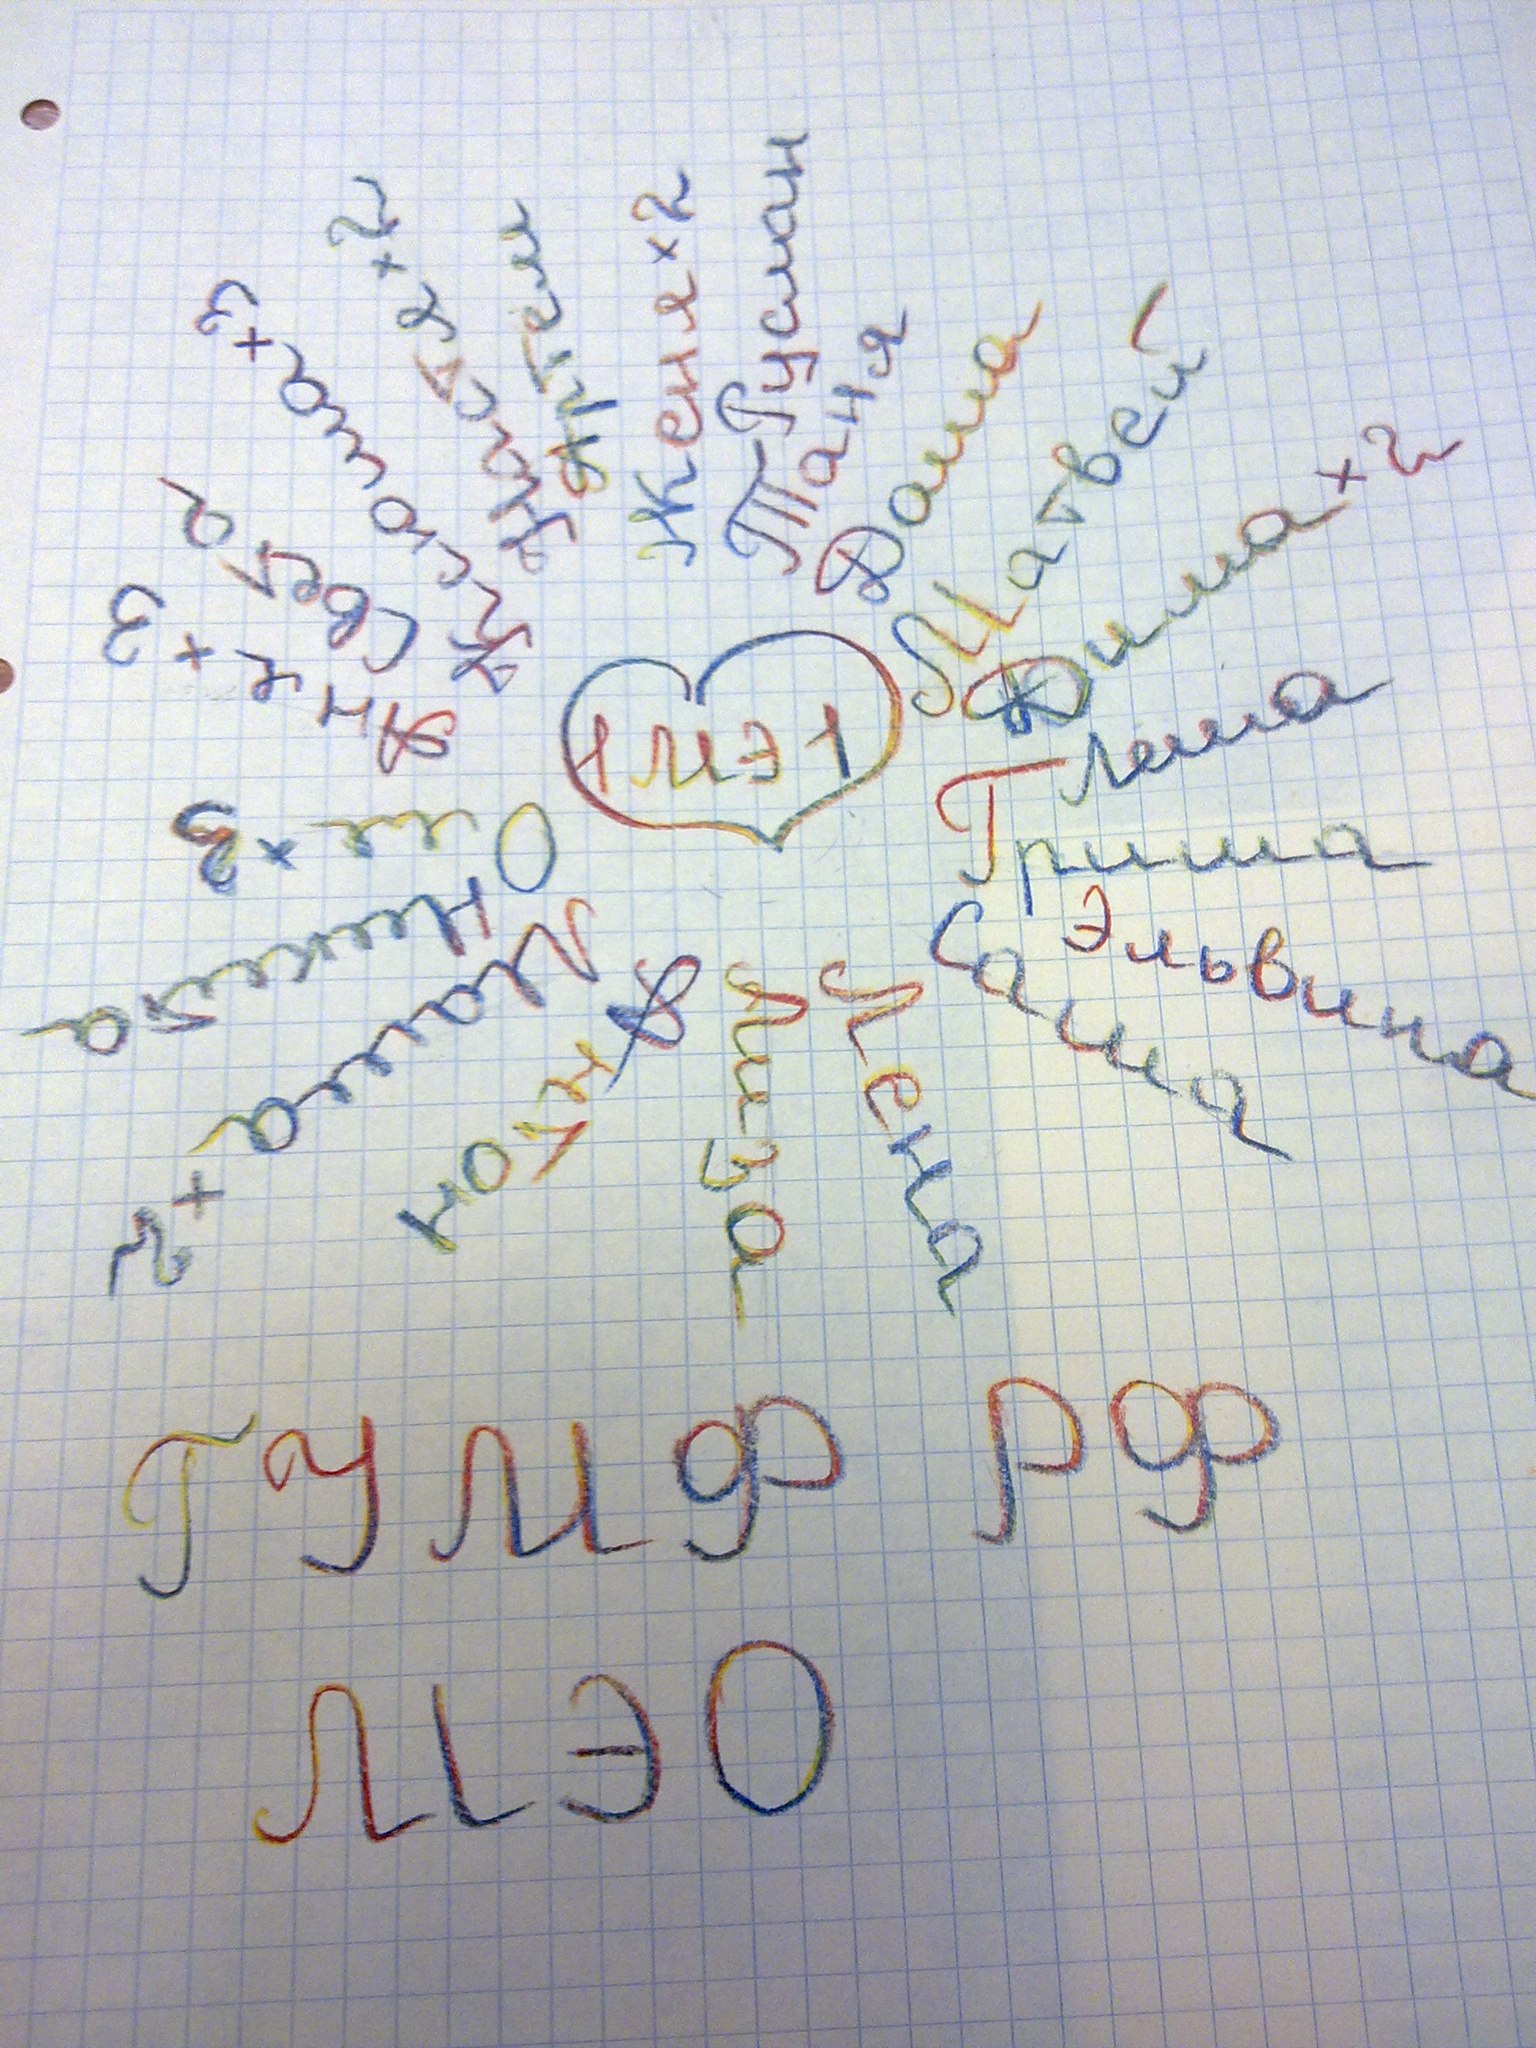 Женя×2
Руслан
Таня
Даша
Матвей
Дима×2
Леша
Гриша
Эльвина
Саша
Лена
Лиза
Антон
Маша×2
Никита
Оля×3
Аня×3
Света
Ксюша×3
Настя×2
Артем
ГУМФ РФ
МЭО